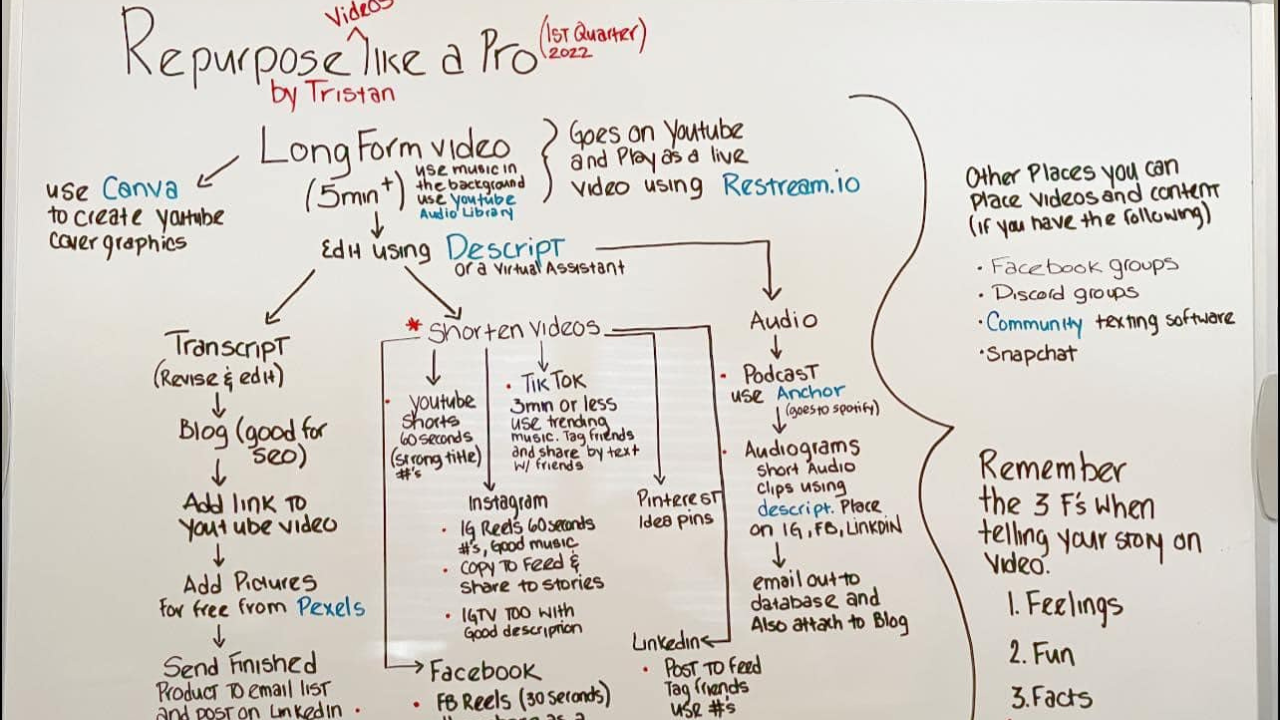 Videos
Repurpose like a Pro (1st Quarter) 2022
by Tristan
Long Form video
(5min+)
use music in
the background
use Youtube
Audio Library
Goes on Youtube
and Play as a live
video using Restream.io
use Canva
to create youtube
cover graphics
Edit using Descript
or a Virtual Assistant
Transcript
(Revise & edit)
Blog (good for
SEO)
Add link to
Youtube video
Add Pictures
for free from Pexels
Send Finished
Product to email list
and post on Linkedin
* Shorten videos
• youtube
shorts
60 seconds
(strong title)
#'s
• TikTok
3min or less
use trending
music. Tag friends
and share by text
w/ friends
Instagram
• IG Reels 60 seconds
#'s, Good music
• copy to Feed &
share to stories
• IGTV too with
Good description
Facebook
• FB Reels (30 seconds)
Pinterest
Idea pins
Linkedin
• Post to feed
Tag friends
use #'s
Audio
• Podcast
use Anchor
(goes to spotify)
• Audiograms
short Audio
clips using
descript. Place
on IG, FB, LinkDIN
email out to
database and
Also attach to Blog
Other Places you can
Place videos and content
(if you have the following)
• Facebook groups
• Discord groups
• Community texting software
• Snapchat
Remember
the 3 F's when
telling your story on
video.
1. Feelings
2. Fun
3. Facts